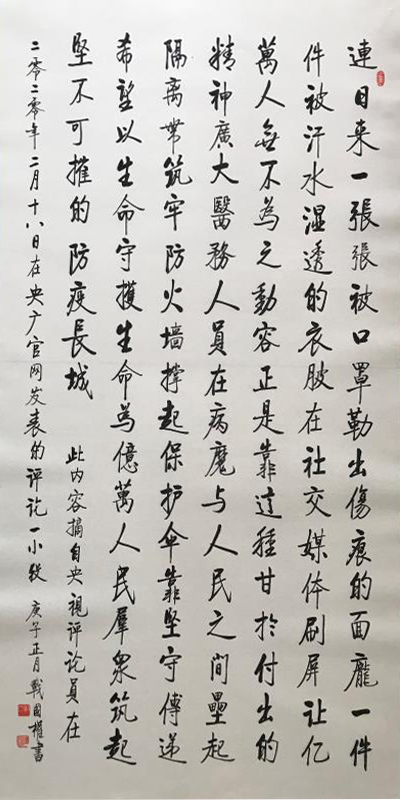 連日来一張張被口罩勒出傷痕的面龐一件
件被汗水湿透的衣服在社交媒体刷屏让亿
萬人無不為之動容正是靠這種甘於付出的
精神廣大醫務人員在病魔与人民之間壘起
隔离带筑牢防火墙撑起保护伞靠坚守傳递
希望以生命守護生命為億萬人民羣衆筑起
坚不可摧的防疫長城 此内容摘自央視评论員在
二零二零年二月十八日在央广官网发表的评论一小段 庚子正月戰國權書